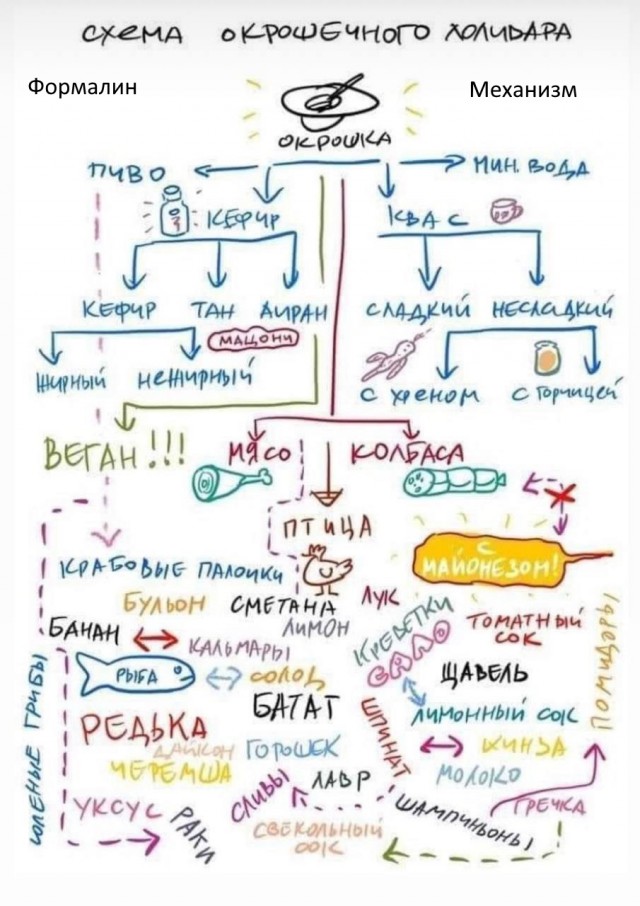 СХЕМА ОКРОШЕЧНОГО ХОЛИВАРА
Формалин
Механизм
ОКРОШКА
ПИВО
МИН. ВОДА
КЕФИР
КВАС
КЕФИР ТАН АЙРАН
СЛАДКИЙ НЕСЛАДКИЙ
МАЦОНИ
ЖИРНЫЙ НЕЖИРНЫЙ
С ХРЕНОМ С ГОРЧИЦЕЙ
ВЕГАН!!!
МЯСО
КОЛБАСА
ПТИЦА
С МАЙОНЕЗОМ!
КРАБОВЫЕ ПАЛОЧКИ
БУЛЬОН СМЕТАНА ЛУК
КРЕВЕТКИ
ТОМАТНЫЙ
СОК
ПОМИДОРЫ
БАНАН
КАЛЬМАРЫ
ЛИМОН
САЛО
ЩАВЕЛЬ
РЫБА
СОЛОД
БАТАТ
ШПИНАТ
ЛИМОННЫЙ СОК
СОЛЕНЫЕ ГРИБЫ
РЕДЬКА
ДАЙКОН
ГОРОШЕК
КИНЗА
ЧЕРЕМША
СЛИВЫ
ЛАВР
МОЛОКО
УКСУС
РАКИ
СВЕКОЛЬНЫЙ
СОК
ШАМПИНЬОНЫ
ГРЕЧКА